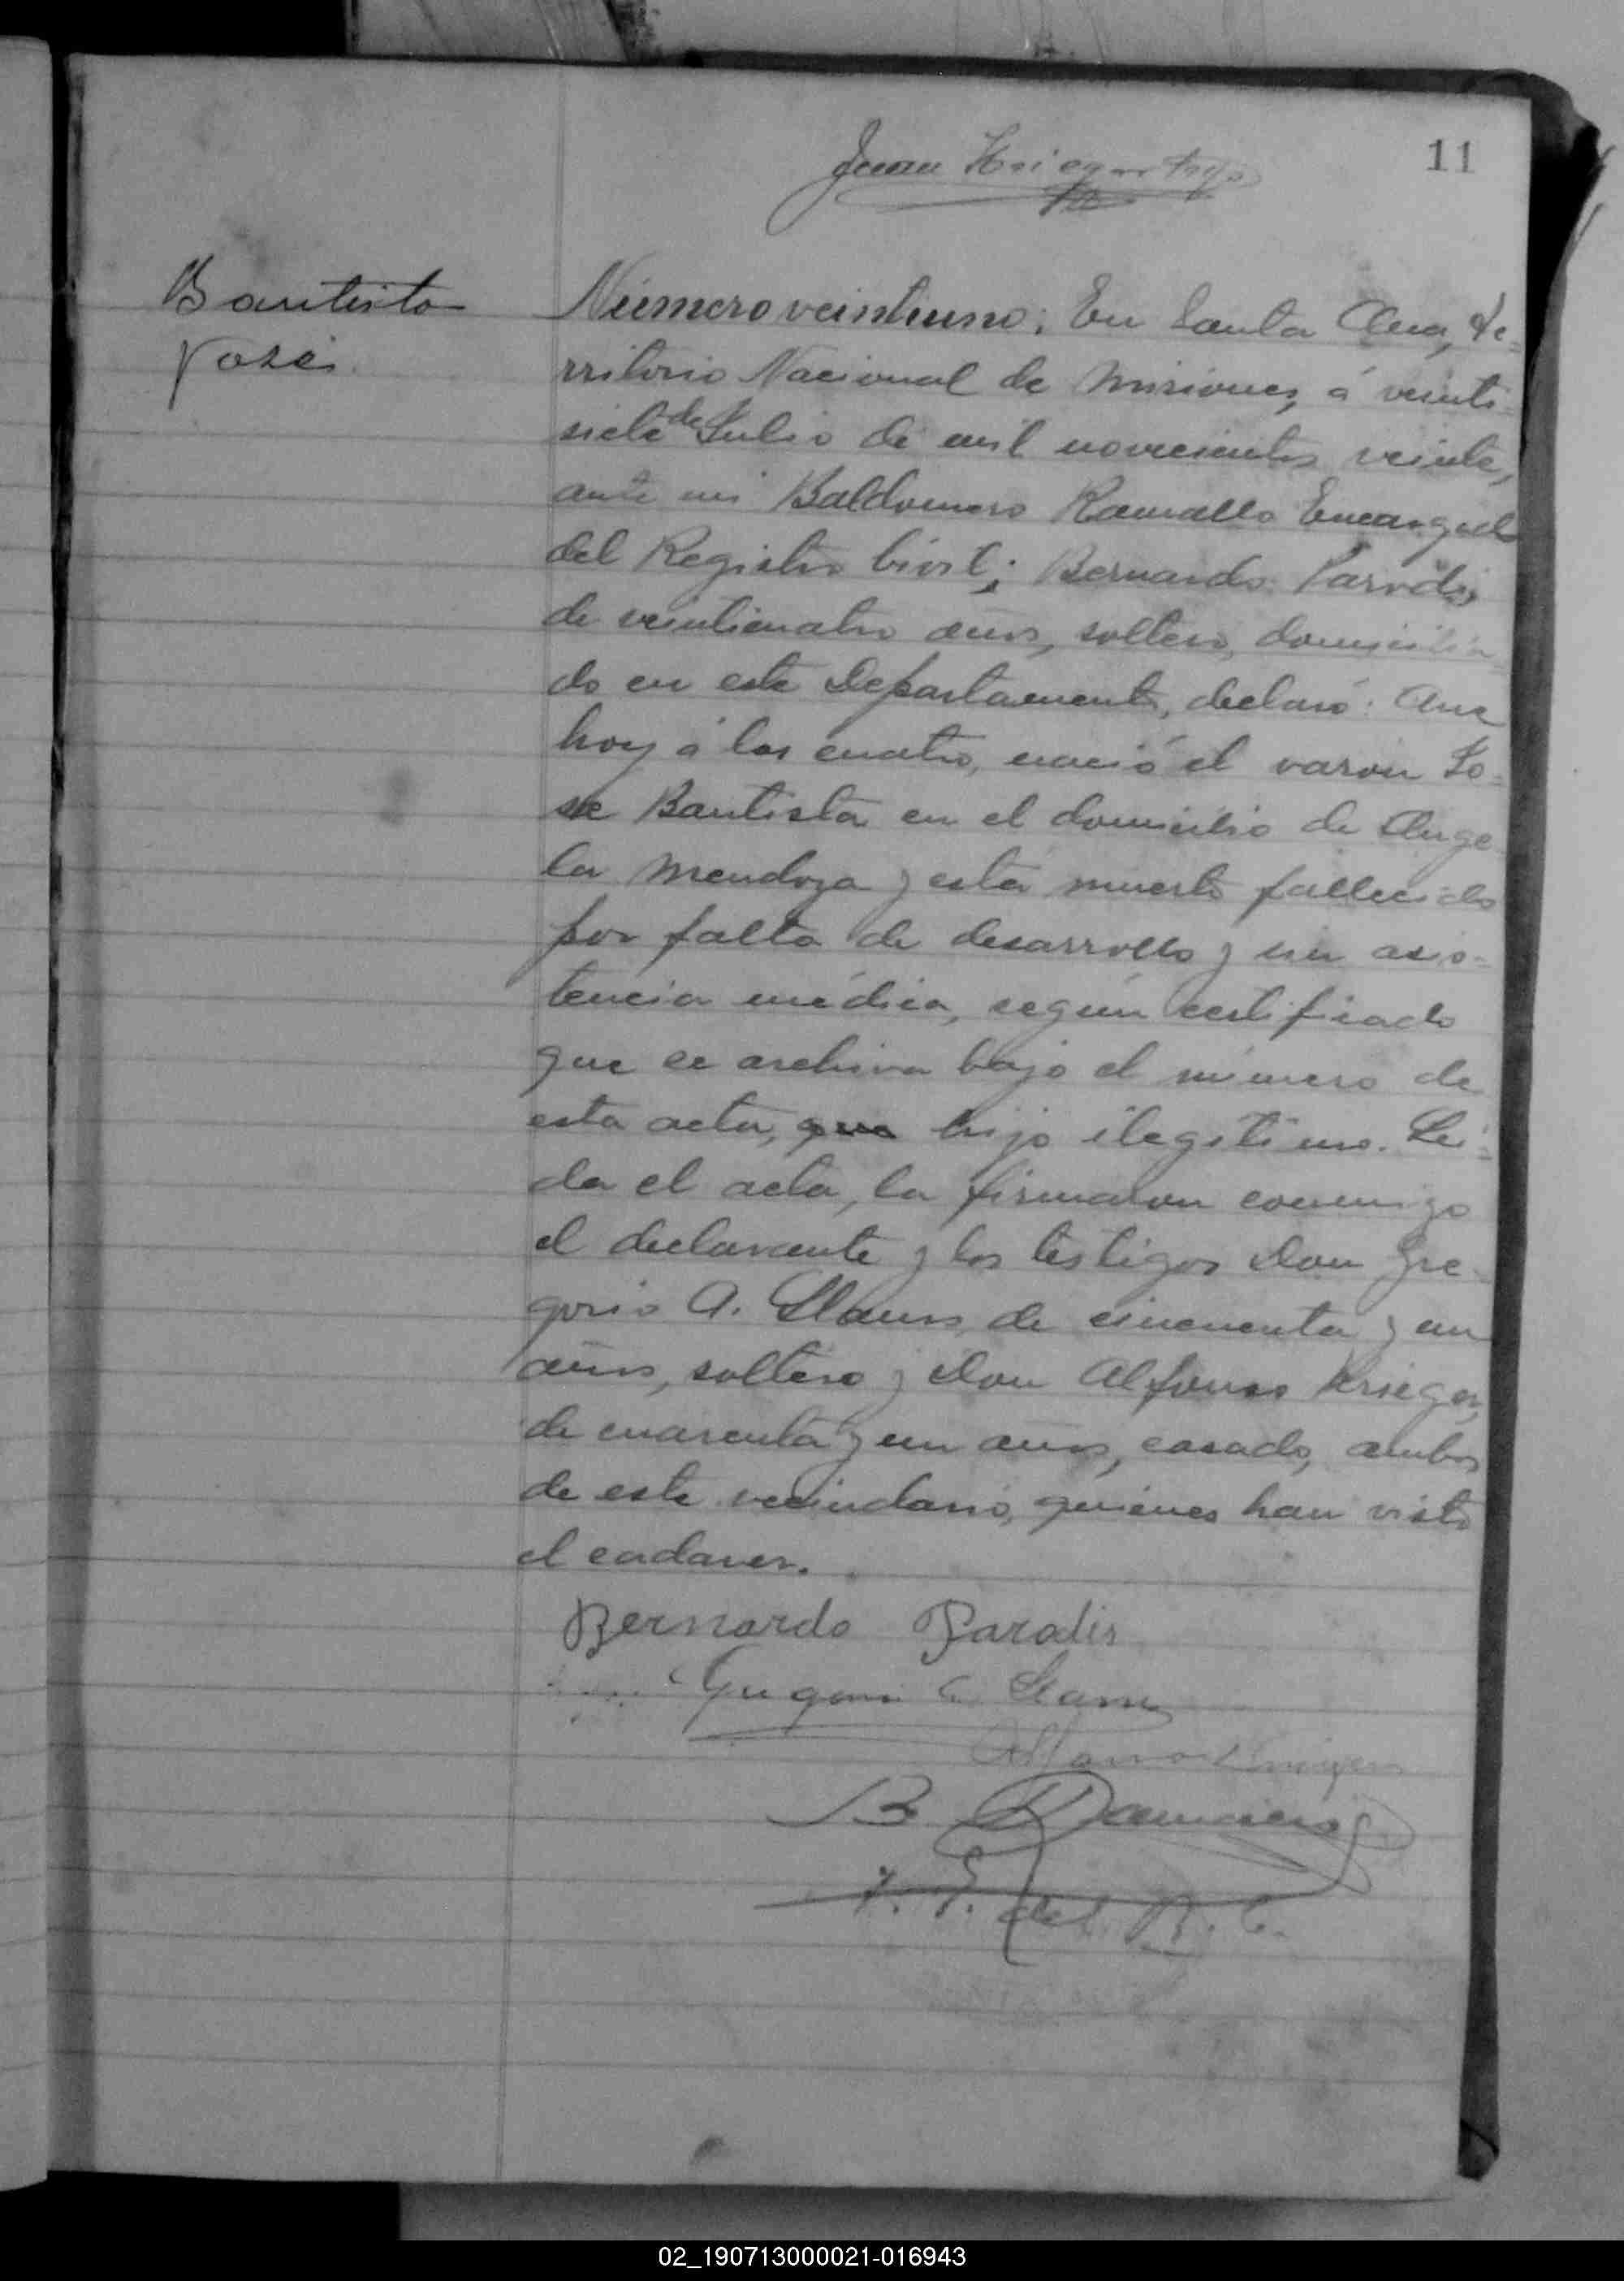 11
Juan Krieger hijo
Bautista
José
Número veintiuno: En Santa Ana, Te-
rritorio Nacional de Misiones, á veinti-
siete de Julio de mil novecientos veinte,
ante mi Baldomero Ramallo Encargad
del Registro Civil; Bernardo Parodis,
de veinticuatro años, soltero, domicilia-
do en este Departamento, declaró: Que
hoy á las cuatro, nació el varon Jo-
se Bautista en el domicilio de Ange-
la Mendoza y está muerto fallecido
por falta de desarrollo y sin asis-
tencia médica, según certificado
que se archiva bajo el número de
esta acta, que hijo ilegítimo. Lei-
da el acta, la firmaron conmigo
el declarante y los testigos Don Gre-
gorio A. Llamas, de cincuenta y un
años, soltero y Don Alfonso Krieger,
de cuarenta y un años, casado, ambos
de este vecindario, quienes han visto
el cadaver.
Bernardo Parodis
Alfonso Krieger
B
del R. C.
02_190713000021-016943